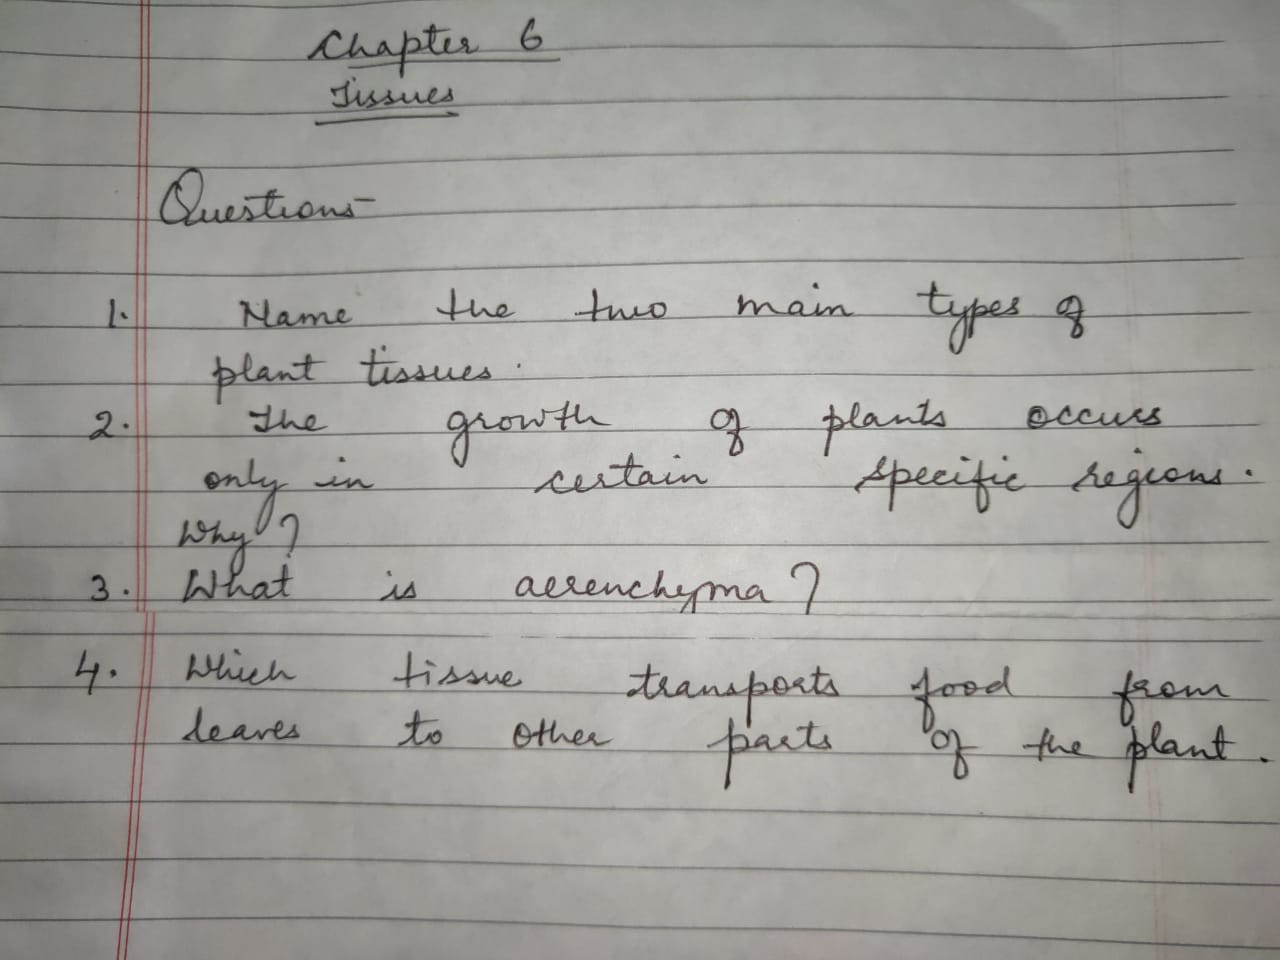 Chapter 6
Tissues
Questions-
1. Name the two main types of
plant tissues.
2. The growth of plants occurs
only in certain specific regions.
Why?
3. What is aerenchyma?
4. Which tissue transports food from
leaves to other parts of the plant.